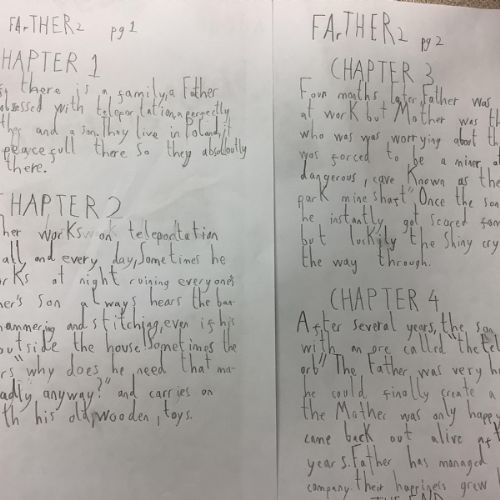 FArTHER2 pg1
CHAPTER 1
there is a family, a Father
obsessed with teleportation, a perfectly
and a son. They live in Poland, it
peacefull there so they absoloutly
there.
CHAPTER 2
works on teleportation
and every day, Sometimes he
at night ruining everyone's
son always hears the ban-
hammering and stitching, even if his
outside the house. Sometimes the
"why does he need that ma-
badly anyway?" and carries on
his old, wooden, toys.
FArTHER2 pg2
CHAPTER 3
Four months later, Father was
at work but Mother was th
who was was worrying about th
was forced to be a miner, a
dangerous, cave known as the
park mine shaft". Once the son
he instantly got scared
but luckily the shiny cry
the way through.
CHAPTER 4
After several years, the son
with an ore called "the tele
orb" The Father was very h
he could finally create a
the Mother was only happy
came back out alive aft
years. Father has managed
company. their happiness grew
THE END